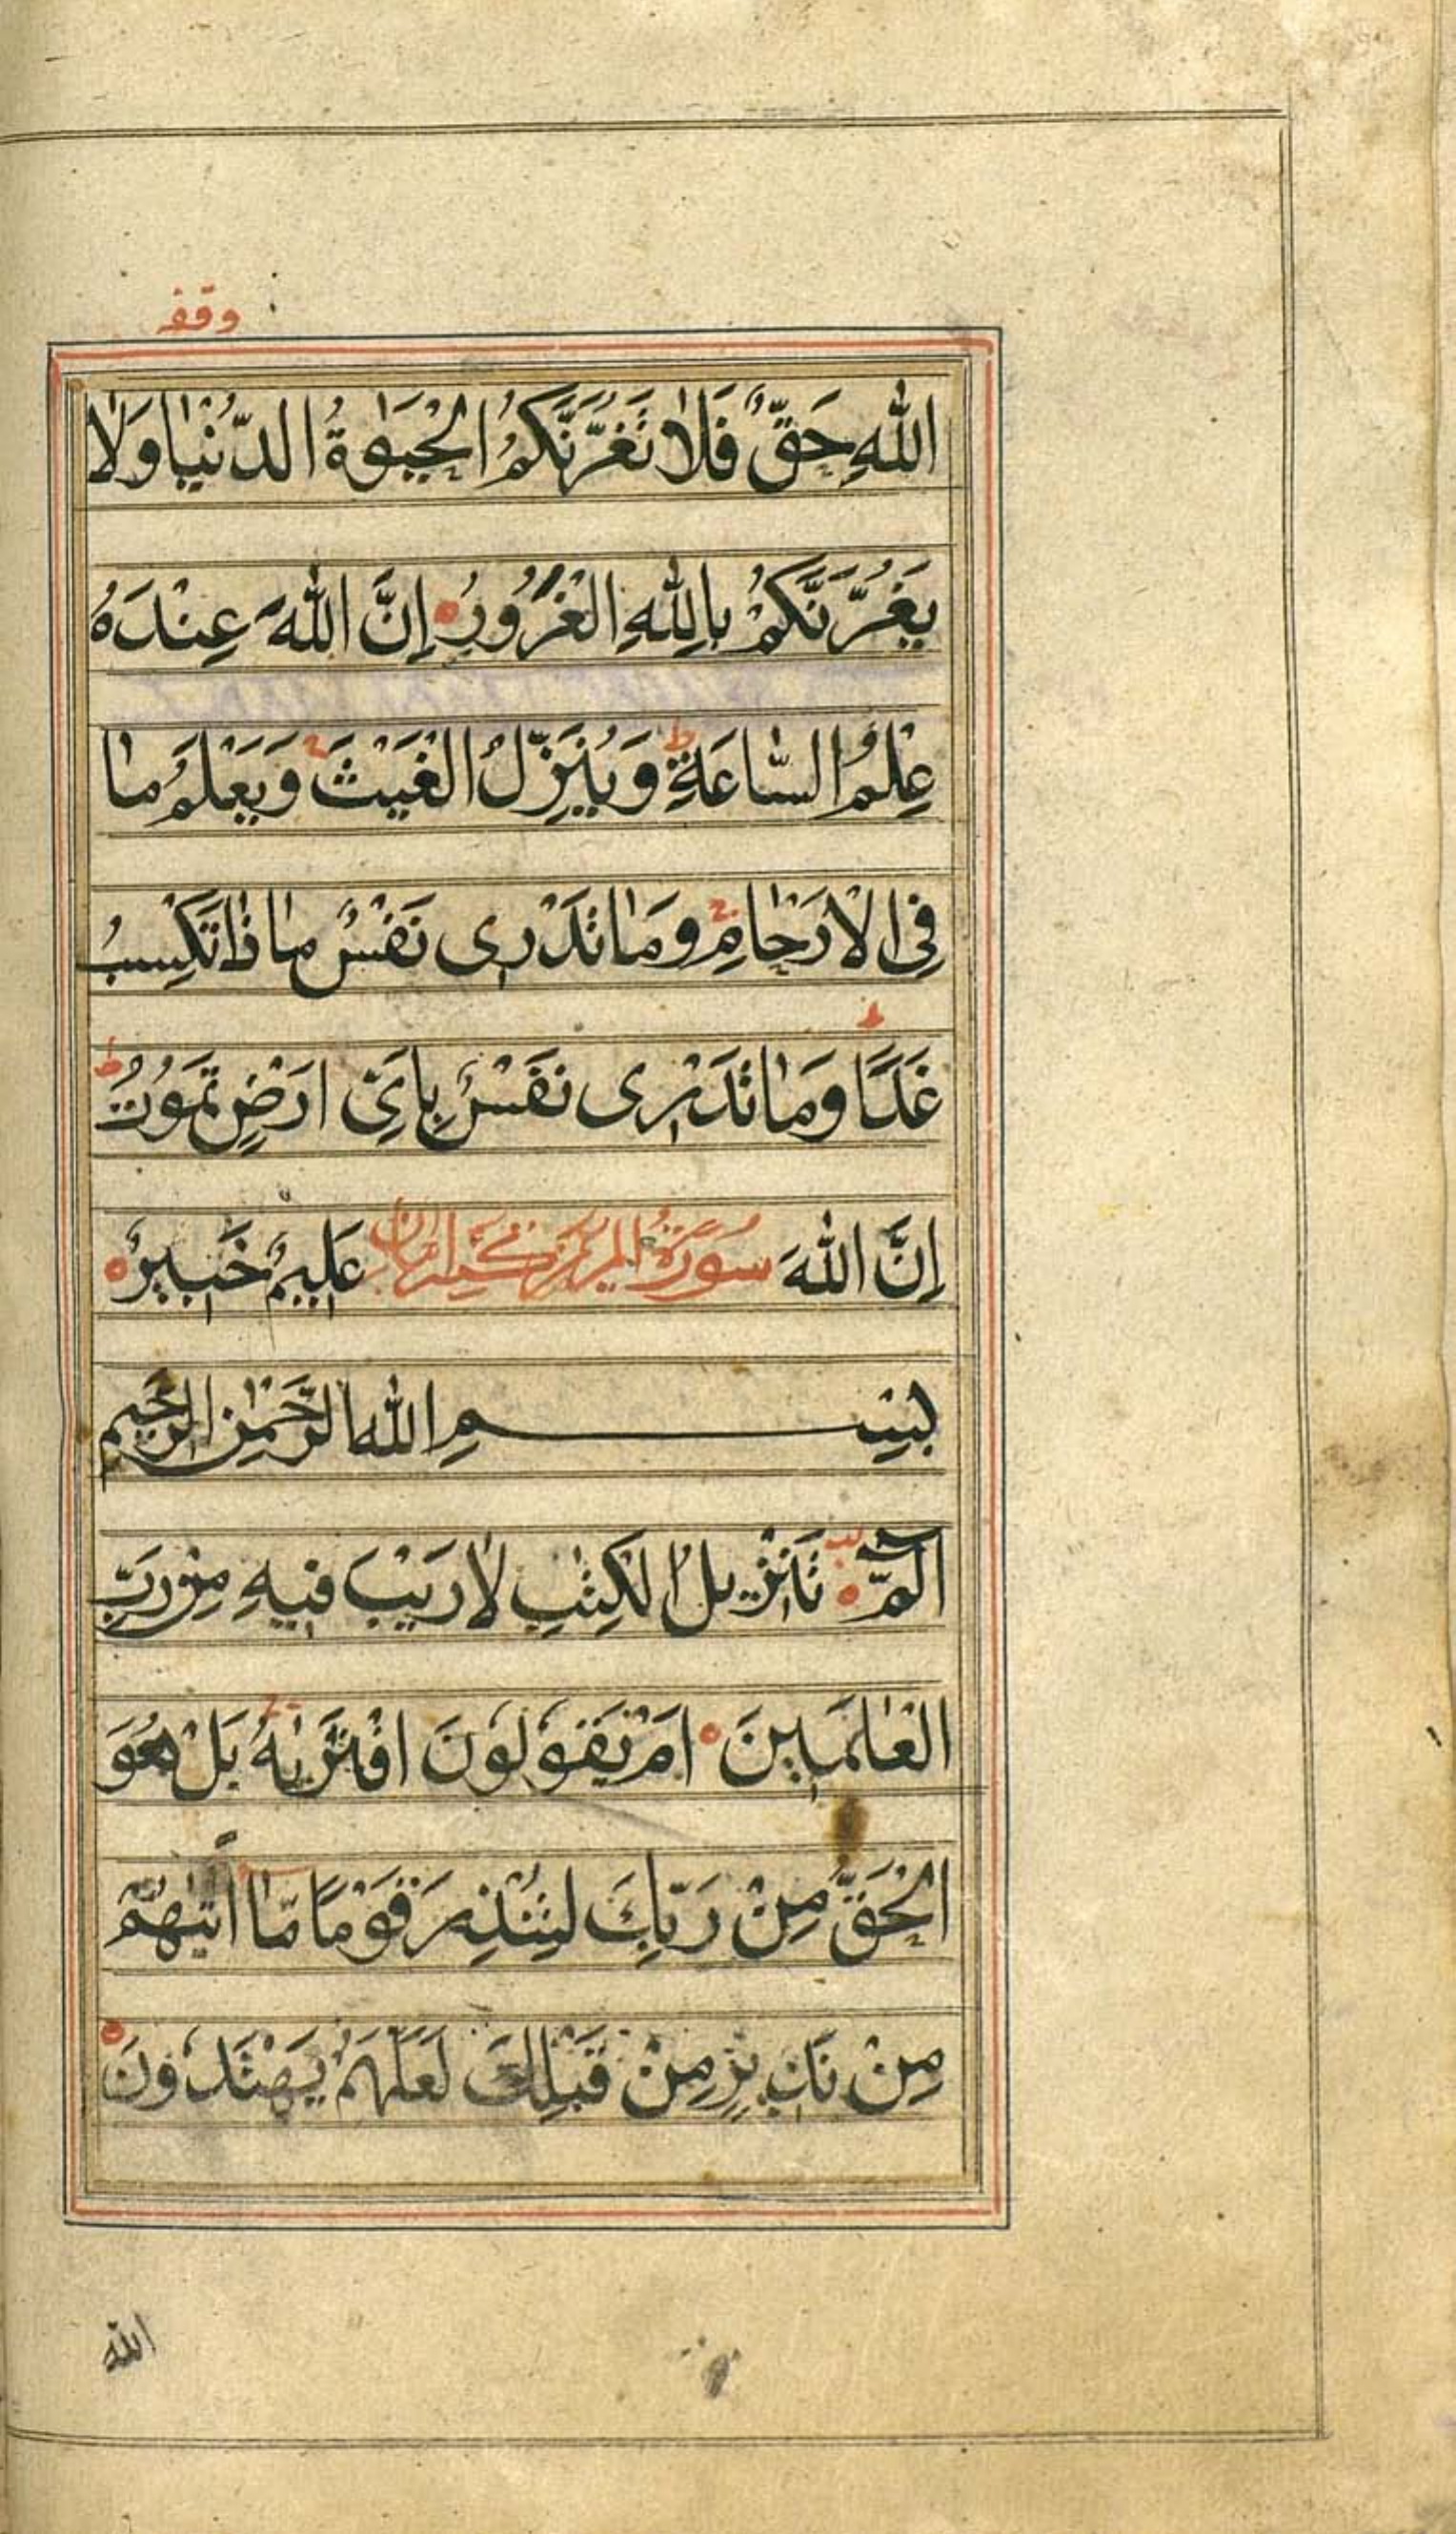 وقفه
اللهِ حَقٌّ فَلَا تَغُرَّنَّكُمُ الْحَيٰوةُ الدُّنْيَا وَلَا
يَغُرَّنَّكُمْ بِاللهِ الْغَرُورُ ه اِنَّ اللهَ عِنْدَهُ
عِلْمُ السَّاعَةِ ط وَيُنَزِّلُ الْغَيْثَ ج وَيَعْلَمُ مَا
فِى الْاَرْحَامِ ج وَمَا تَدْرِى نَفْسٌ مَاذَا تَكْسِبُ
غَدًا ط وَمَا تَدْرِى نَفْسٌ بِاَىِّ اَرْضٍ تَمُوتُ ط
اِنَّ اللهَ سُورَةُ عَلِيمٌ خَبِيرٌ ه
بِسْمِ اللهِ الرَّحْمٰنِ الرَّحِيمِ
الٓمّٓ ه تَنْزِيلُ الْكِتٰبِ لَا رَيْبَ فِيهِ مِنْ رَبِّ
الْعٰلَمِينَ ه اَمْ يَقُولُونَ افْتَرٰيهُ ج بَلْ هُوَ
الْحَقُّ مِنْ رَبِّكَ لِتُنْذِرَ قَوْمًا مَّا اَتٰيهُمْ
مِنْ نَذِيرٍ مِنْ قَبْلِكَ لَعَلَّهُمْ يَهْتَدُونَ ه
الله